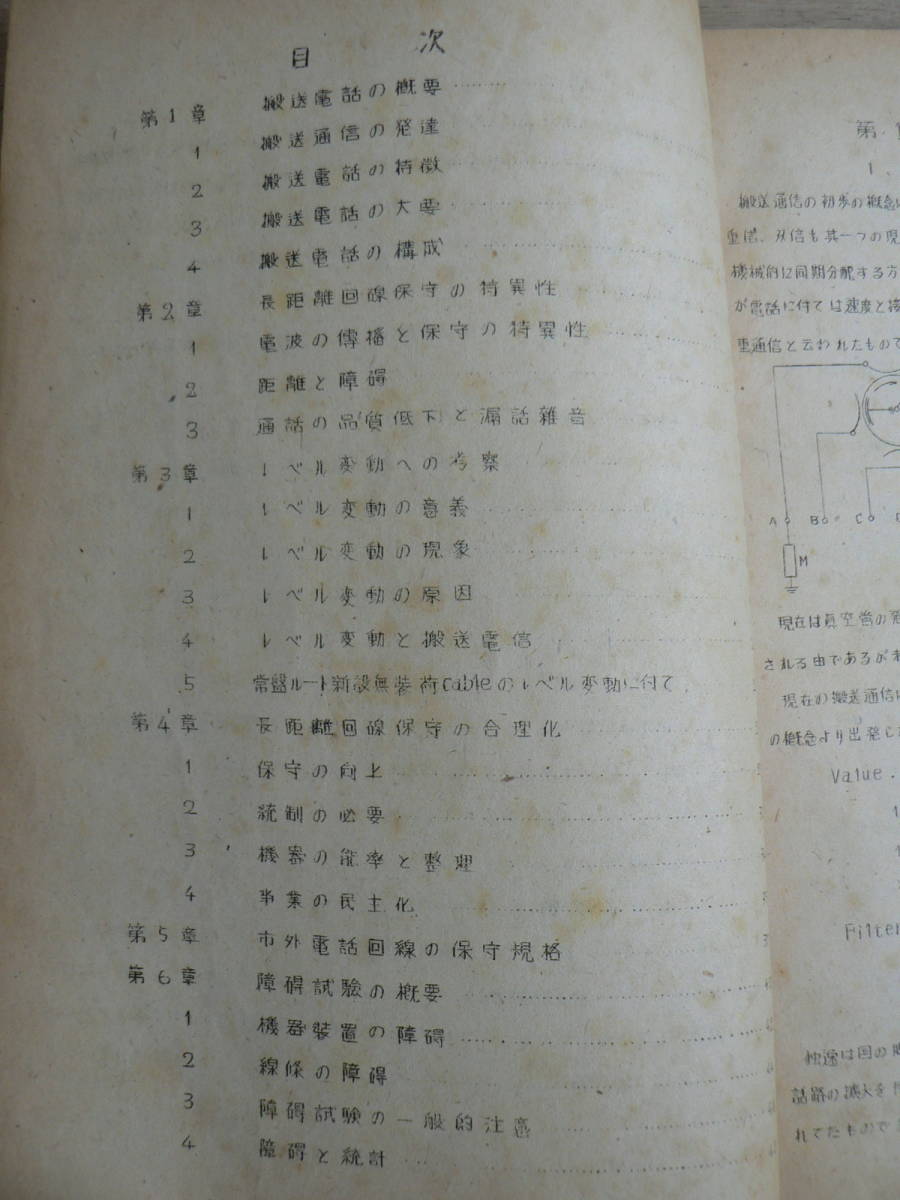 目次
第1章 搬送電話の概要
1 搬送通信の発達
2 搬送電話の特徴
3 搬送電話の大要
4 搬送電話の構成
第2章 長距離回線保守の特異性
1 電波の傳播と保守の特異性
2 距離と障碍
3 通話の品質低下と漏話雑音
第3章 レベル変動への考察
1 レベル変動の意義
2 レベル変動の現象
3 レベル変動の原因
4 レベル変動と搬送電信
5 常盤ルート新設無装荷Cableのレベル変動に付て
第4章 長距離回線保守の合理化
1 保守の向上
2 統制の必要
3 機器の能率と整理
4 事業の民主化
第5章 市外電話回線の保守規格
第6章 障碍試験の概要
1 機器装置の障碍
2 線條の障碍
3 障碍試験の一般的注意
4 障碍と統計
第1
1.
搬送通信の初歩の概念
重信、双信も其一つの現
機械的に同期分配する方
が電話に付ては速度と
重通信と云われたもので
A B C
M
現在は真空管の発
される由であるが
現在の搬送通信
の概念より出発し
Value.
Filter
快速は国の
話路の擴大を
れてたもので